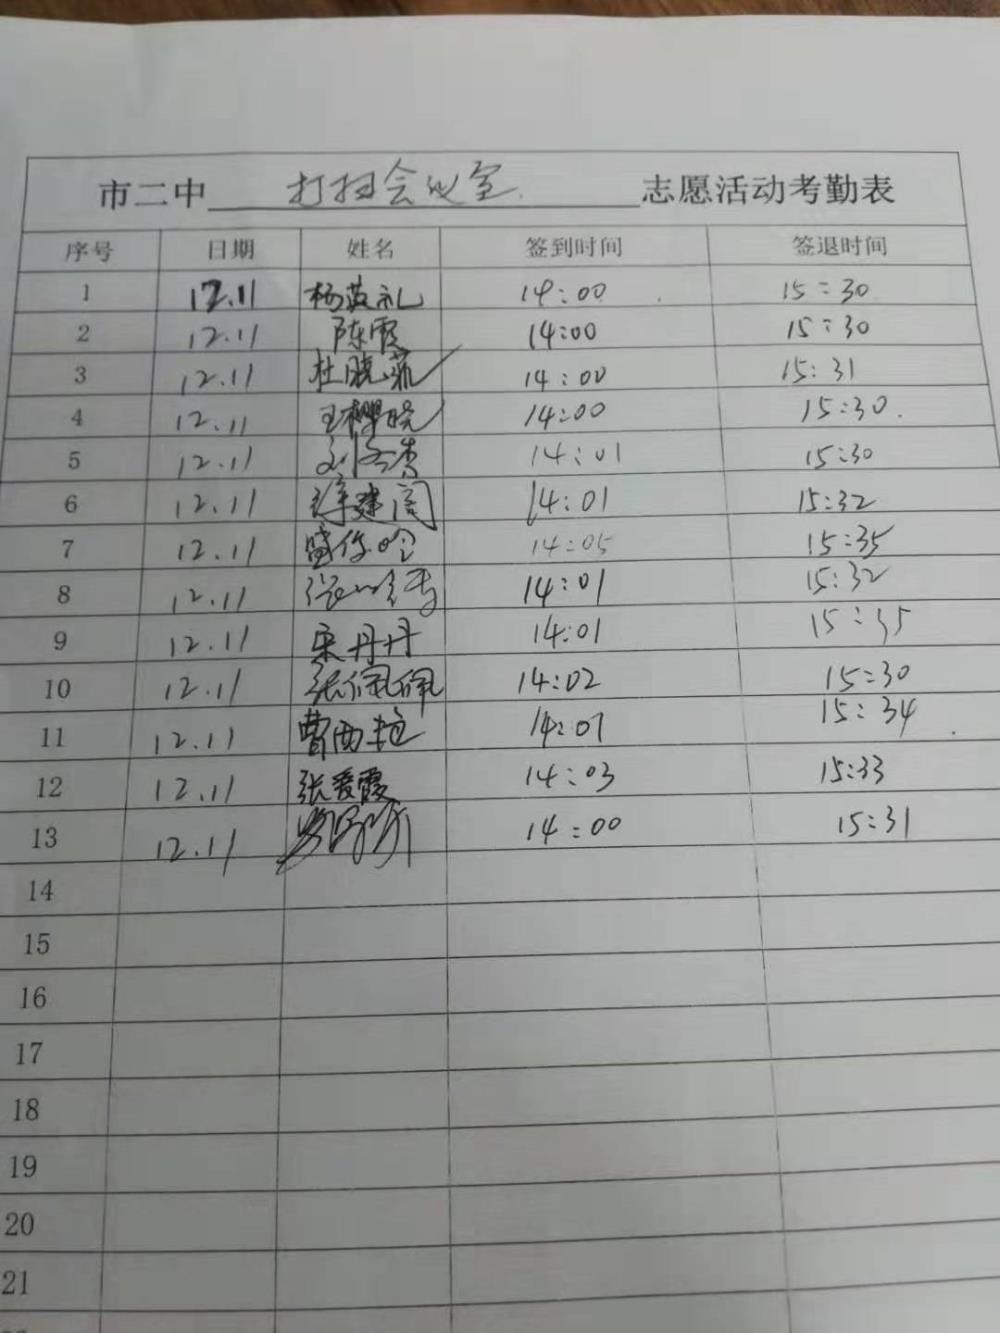 市二中 打扫会议室 志愿活动考勤表
序号 日期 姓名 签到时间 签退时间
1 12.11 杨 礼 14:00 15:30
2 12.11 陈霞 14:00 15:30
3 12.11 杜晓菲 14:00 15:31
4 12.11 王樱晓 14:00 15:30.
5 12.11 14:01 15:30
6 12.11 建 14:01 15:32
7 12.11 盛 14:05 15:35
8 12.11 14:01 15:32
9 12.11 宋丹丹 14:01 15:35
10 12.11 张佩佩 14:02 15:30
11 12.11 曹西艳 14:01 15:34
12 12.11 张爱霞 14:03 15:33
13 12.11 14:00 15:31
14
15
16
17
18
19
20
21